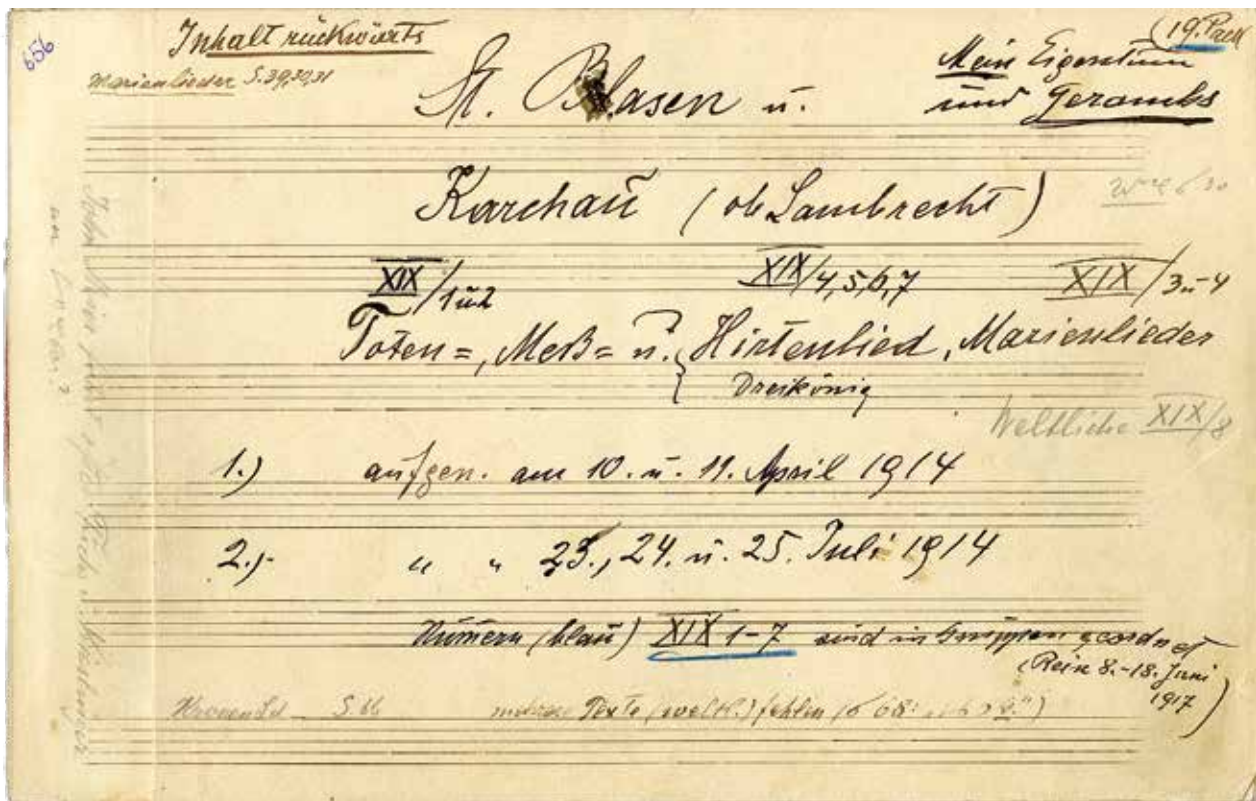 656
Inhalt rückwärts
Marienlieder S. 29,30,31
(19. Pack
Mein Eigentum
und Gerambs
St. Blasen u.
Karchau (ob Lambrecht)
XIX/1u2
XIX/4,5,6,7
XIX/3u4
Toten=, Meß= u. Hirtenlied, Marienlieder
Dreikönig
Weltliche XIX/8
1.) aufgen. am 10. u. 11. April 1914
2.) " " 23., 24. u. 25. Juli 1914
Numern (blau) XIX 1-7 sind in Gruppen geordnet
(Rein 8.-18. Juni
1917)
S. 66 mehrere Texte (weltl.) fehlen